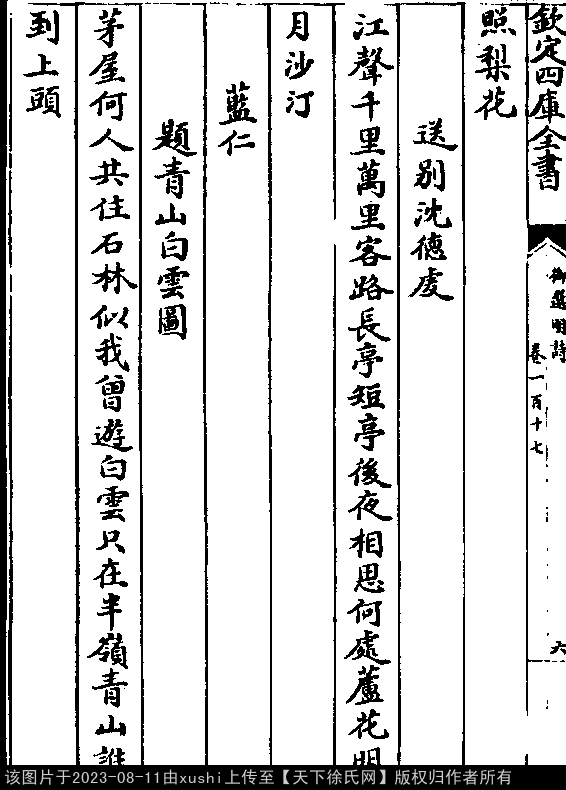 欽定四庫全書
御選明詩
卷一百十七
六
照梨花
送別沈德虔
江聲千里萬里客路長亭短亭後夜相思何處蘆花明
月沙汀
藍仁
題青山白雲圖
茅屋何人共住石林似我曾遊白雲只在半嶺青山誰
到上頭
该图片于2023-08-11由xushi上传至【天下徐氏网】版权归作者所有